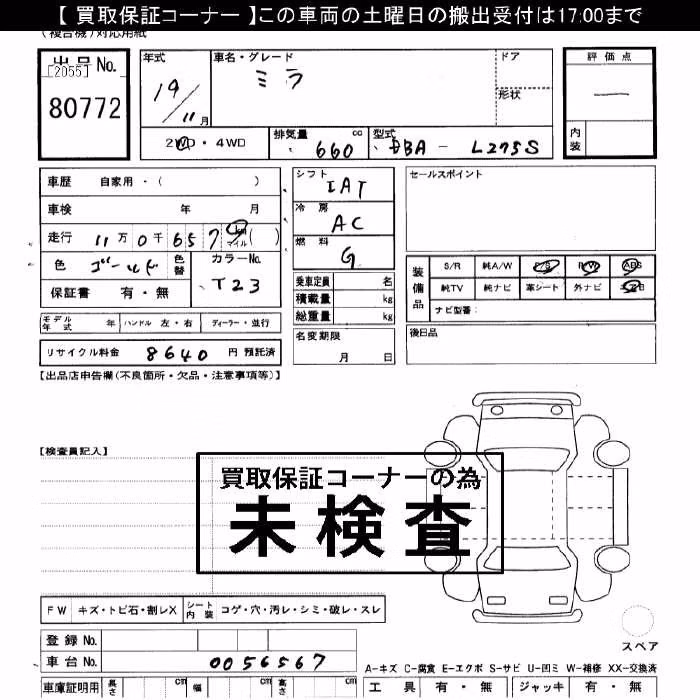 【 買取保証コーナー 】この車両の土曜日の搬出受付は17:00まで
(複合機)対応用紙
出品No.
[2055]
80772
年式
19/11月
車名・グレード
ミラ
ドア
形状
評価点
—
内装
2WD・4WD
排気量 660 cc
型式 DBA - L275S
車歴 自家用・( )
車検 年 月
走行 11万0千657 km マイル( )
色 ゴールド 色替
カラーNo. T23
保証書 有・無
シフト IAT
冷房 AC
燃料 G
乗車定員 名
積載量 kg
総重量 kg
セールスポイント
装備品
S/R 純A/W P/S P/W ABS
純TV 純ナビ 革シート 外ナビ
ナビ型番:
モデル年式 年 ハンドル 左・右 ディーラー・並行
名変期限
月 日
後日品
リサイクル料金 8640 円 預託済
【出品店申告欄(不良箇所・欠品・注意事項等)】
【検査員記入】
買取保証コーナーの為
未検査
FW キズ・トビ石・割レX シート内装 コゲ・穴・汚レ・シミ・破レ・スレ
登録No.
車台No. 0056567
スペア
A-キズ C-腐食 E-エクボ S-サビ U-凹ミ W-補修 XX-交換済
車庫証明用 長さ cm 幅 cm 高さ cm
工具 有・無 ジャッキ 有・無